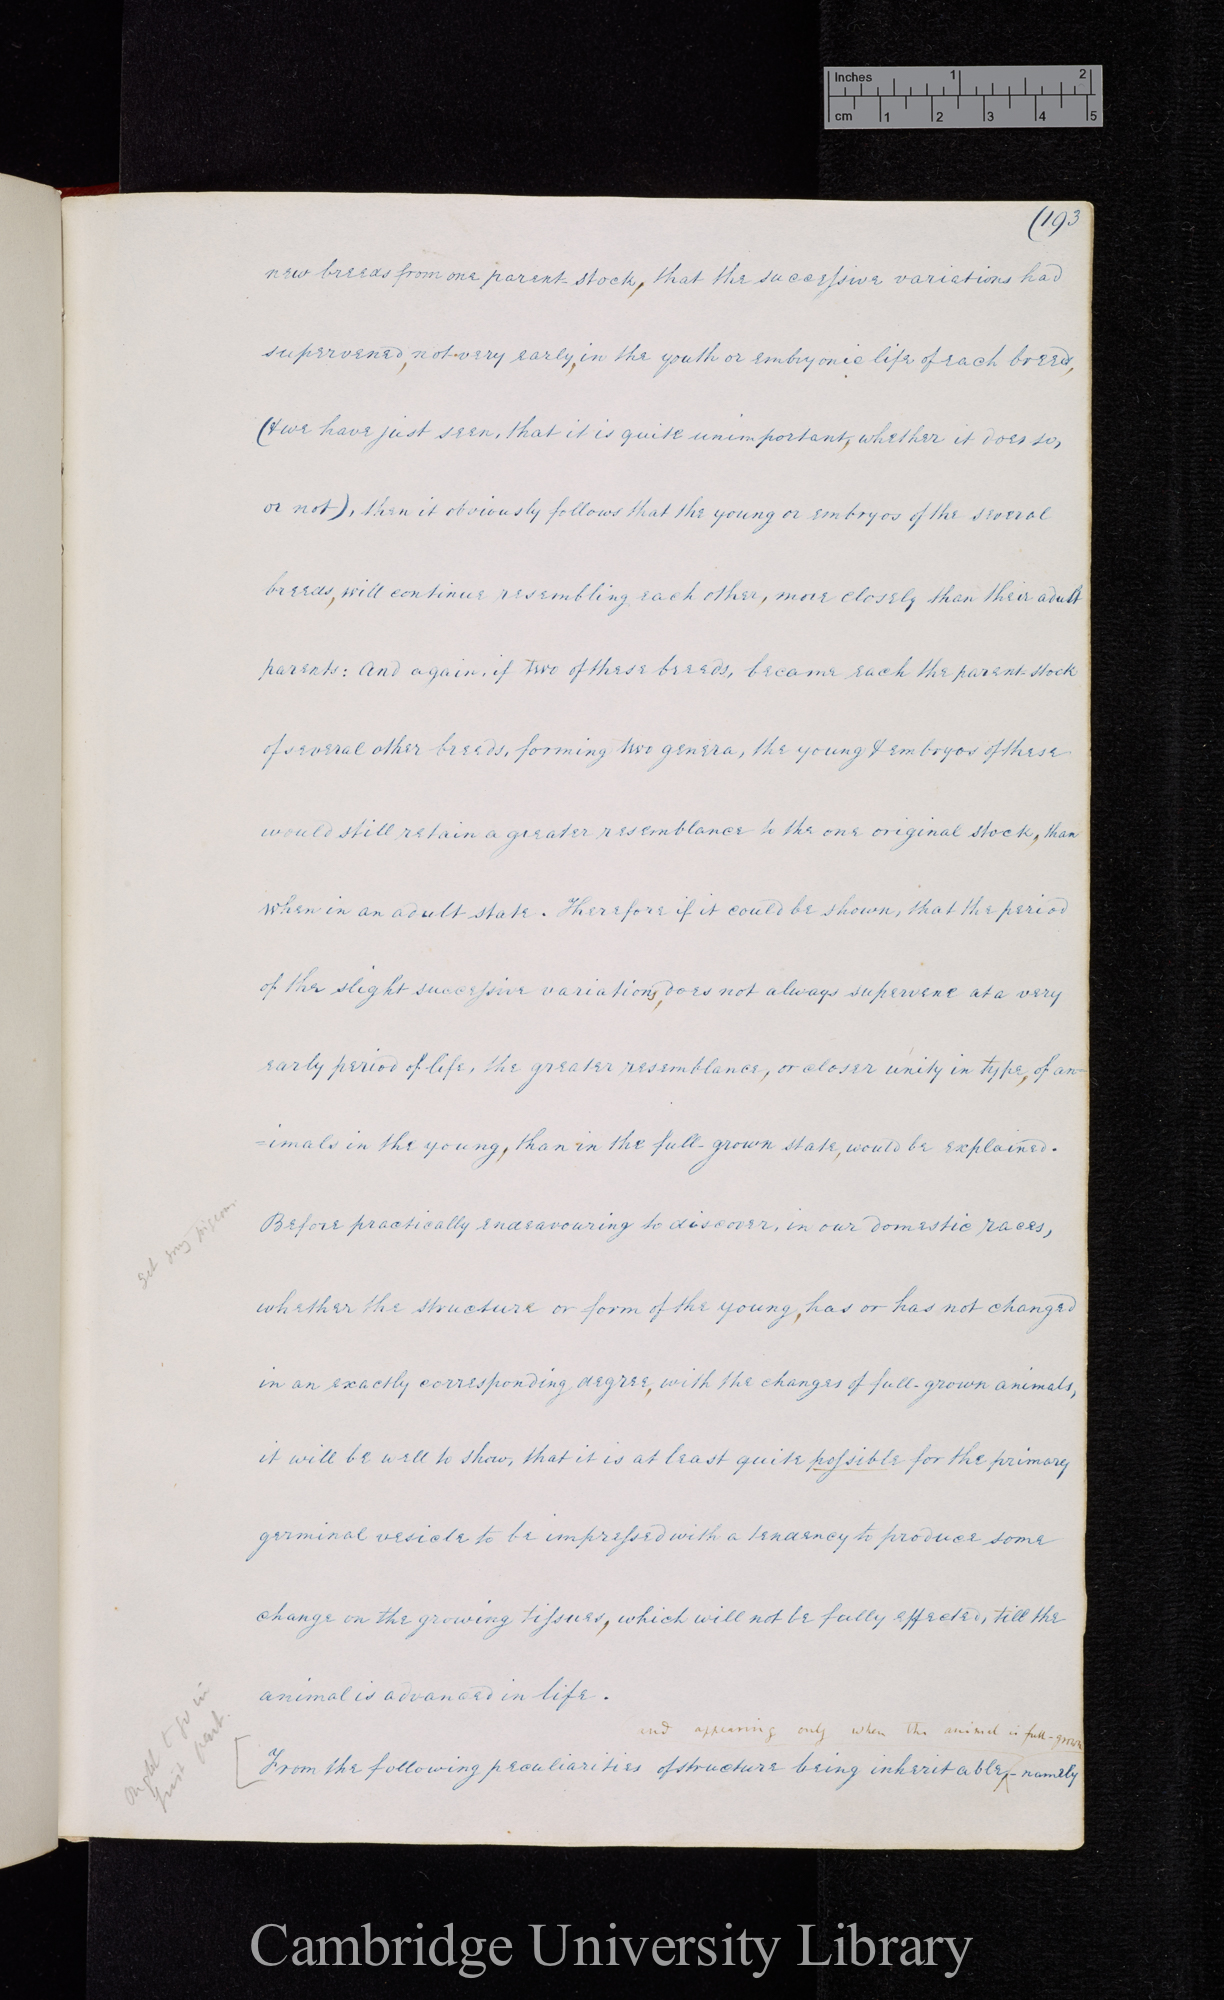 Inches 1 2
cm 1 2 3 4 5
(193
new breeds from one parent-stock, that the successive variations had
supervened, not very early, in the youth or embryonic life of each breed,
(& we have just seen, that it is quite unimportant, whether it does so,
or not), then it obviously follows that the young or embryos of the several
breeds, will continue resembling each other, more closely than their adult
parents: And again, if two of these breeds, became each the parent-stock
of several other breeds, forming two genera, the young & embryos of these
would still retain a greater resemblance to the one original stock, than
when in an adult state. Therefore if it could be shown, that the period
of the slight successive variations, does not always supervene at a very
early period of life, the greater resemblance, or closer unity in type, of an-
=imals in the young, than in the full-grown state, would be explained.
Before practically endeavouring to discover, in our domestic races,
whether the structure or form of the young, has or has not changed
in an exactly corresponding degree, with the changes of full-grown animals,
it will be well to show, that it is at least quite possible for the primary
germinal vesicle to be impressed with a tendency to produce some
change on the growing tissues, which will not be fully effected, till the
animal is advanced in life.
and appearing only when the animal is full-grown
[From the following peculiarities of structure being inheritable,- namely
Get young pigeons
Ought to go in
first part.
Cambridge University Library